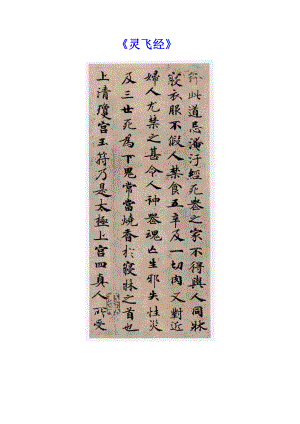 《灵飞经》
行此道忌淹汙經死喪之家不得與人同牀
寢衣服不假人禁食五辛及一切肉又對近
婦人尤禁之甚令人神喪魂亡生邪失性災
及三世死為下鬼常當燒香扵寢牀之首也
上清瓊宮玉符乃是太極上宮四真人所受